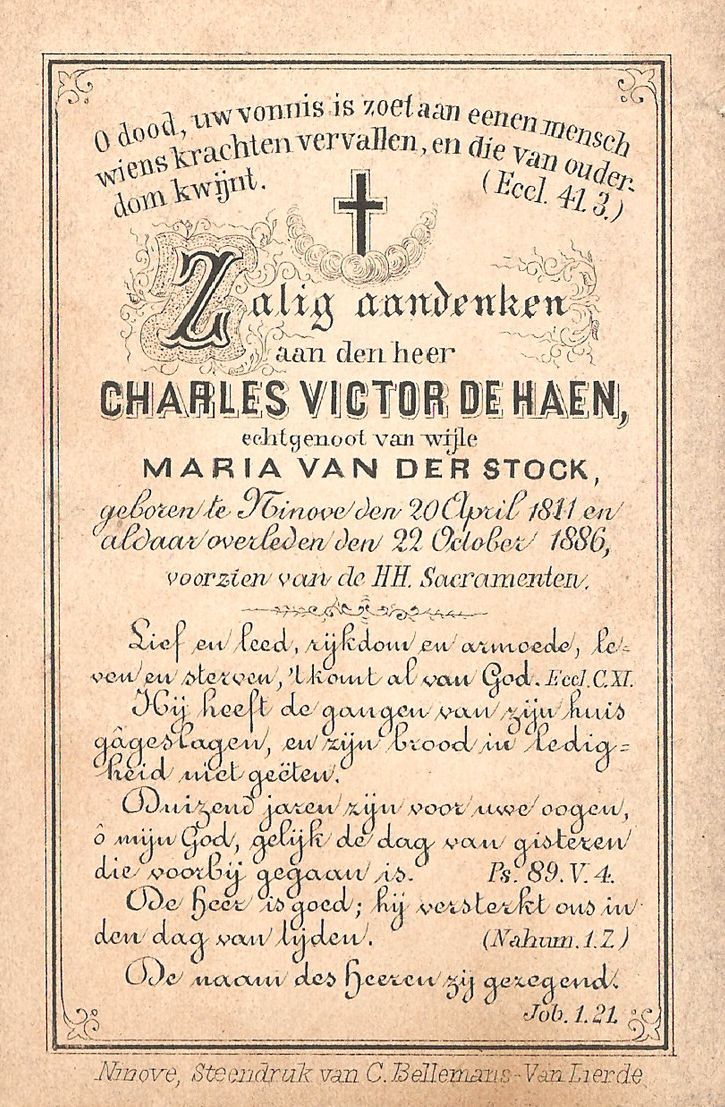 O dood, uw vonnis is zoet aan eenen mensch
wiens krachten vervallen, en die van ouder-
dom kwijnt. (Eccl. 41. 3.)
Zalig aandenken
aan den heer
CHARLES VICTOR DE HAEN,
echtgenoot van wijle
MARIA VAN DER STOCK,
geboren te Ninove den 20 April 1811 en
aldaar overleden den 22 October 1886,
voorzien van de HH. Sacramenten.
Lief en leed, rijkdom en armoede, le-
ven en sterven, 't komt al van God. Eccl. C. XI.
Hij heeft de gangen van zijn huis
gâgeslagen, en zijn brood in ledig=
heid niet geëten.
Duizend jaren zijn voor uwe oogen,
ô mijn God, gelijk de dag van gisteren
die voorbij gegaan is. Ps. 89. V. 4.
De heer is goed; hij versterkt ons in
den dag van lijden. (Nahum. 1. 7.)
De naam des heeren zij gezegend.
Job. 1. 21.
Ninove, Steendruk van C. Bellemans-Van Lierde